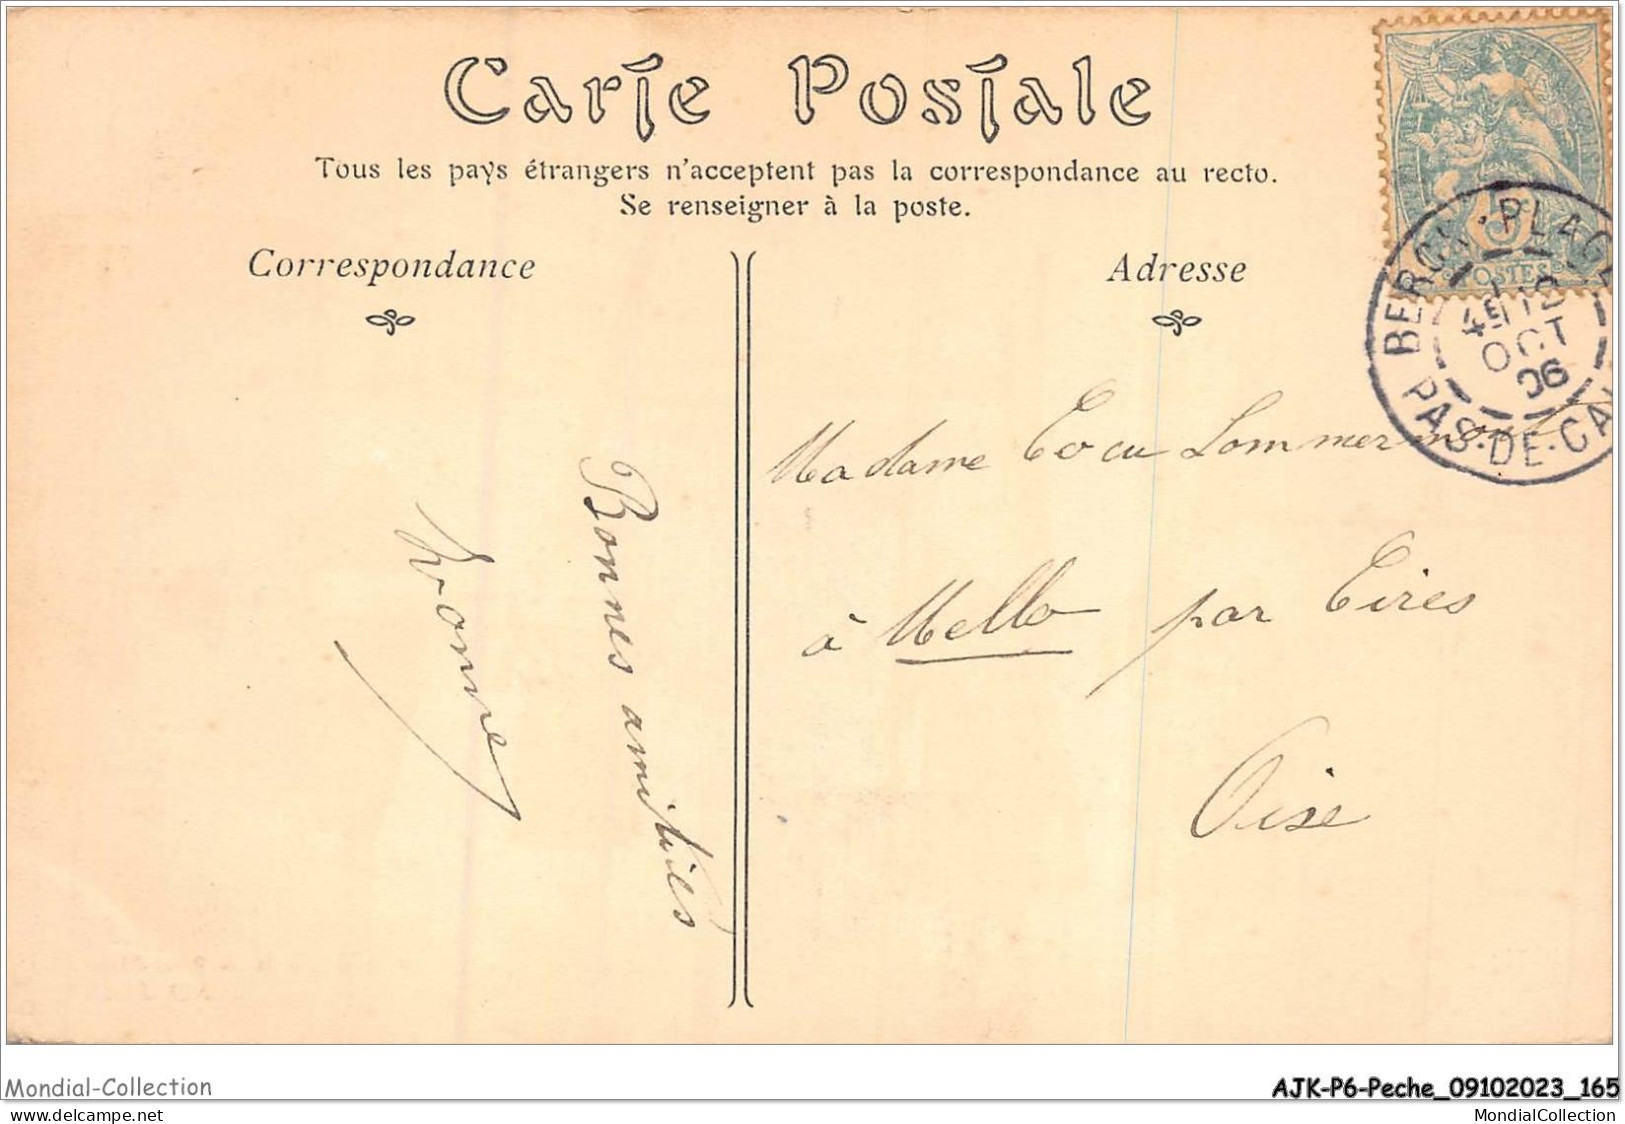 Carte Postale
Tous les pays étrangers n'acceptent pas la correspondance au recto.
Se renseigner à la poste.
Correspondance
Adresse
5c
POSTES
BERCK-PLAGE
OCT
06
PAS-DE-CA
Madame Lommermont
à Mello par Cires
Oise
Bonnes amitiés
Yvonne
Mondial-Collection
AJK-P6-Peche_09102023_165
www.delcampe.net
MondialCollection